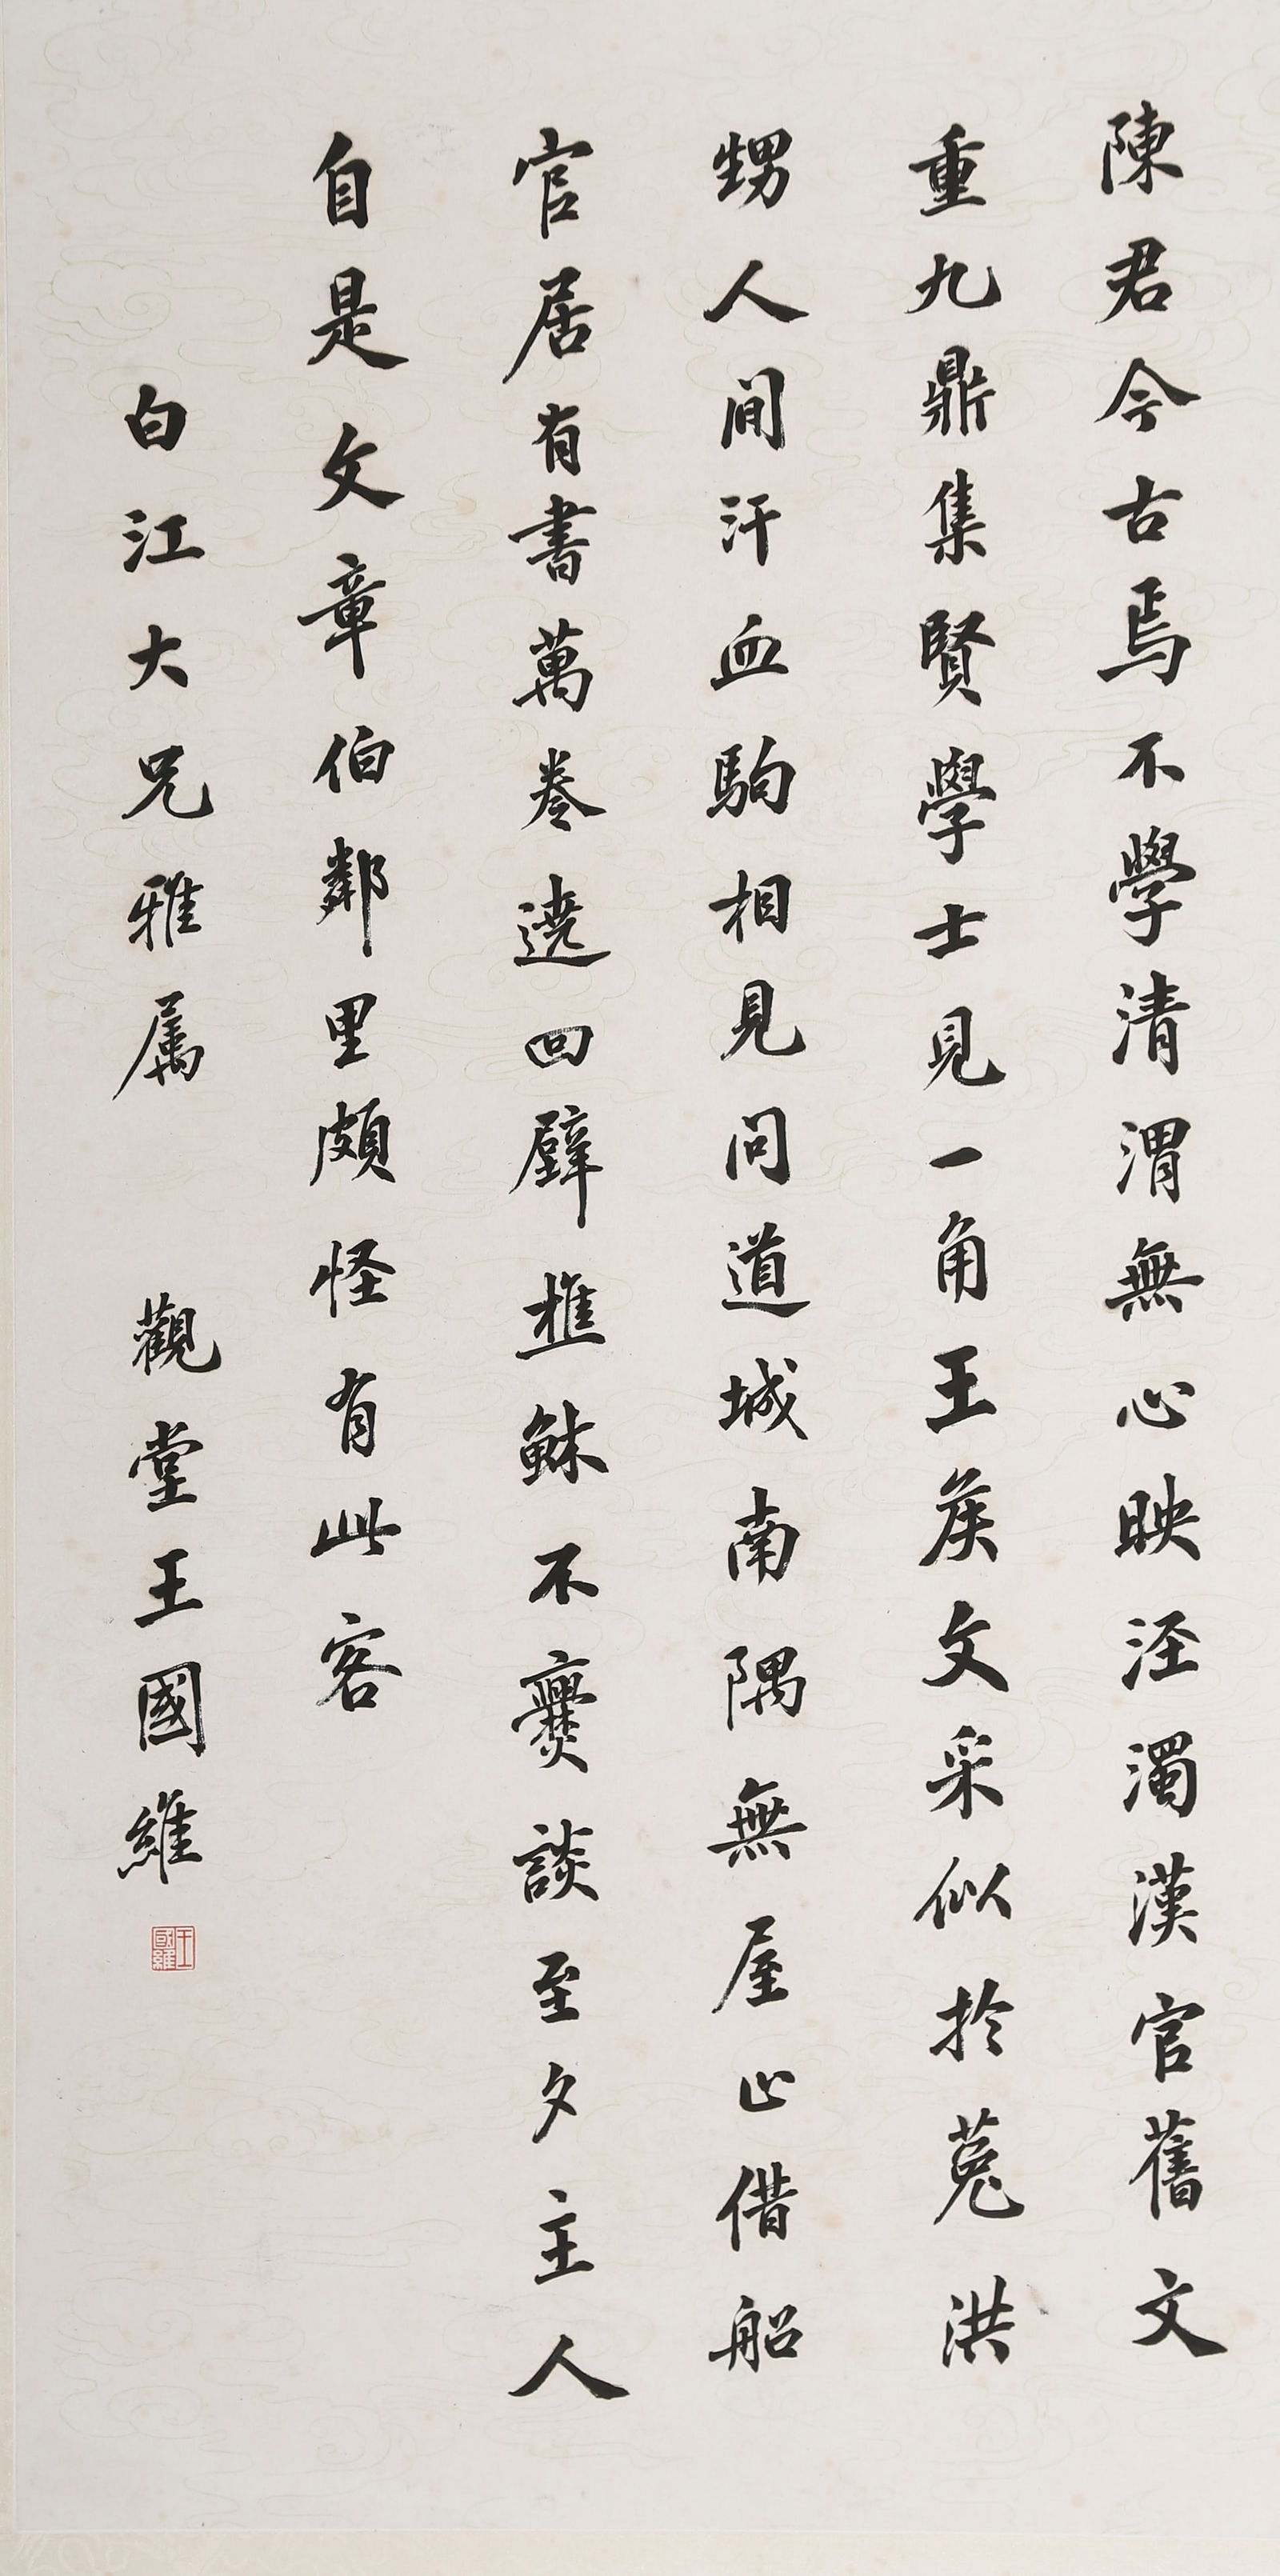 陳君今古焉不學清渭無心映涇濁漢官舊文
重九鼎集賢學士見一角王矦文采似於菟洪
甥人間汗血駒相見問道城南隅無屋止借船
官居有書萬卷遶回壁樵穌不爨談至夕主人
自是文章伯鄰里頗怪有此客
白江大兄雅屬 觀堂王國維
王國維